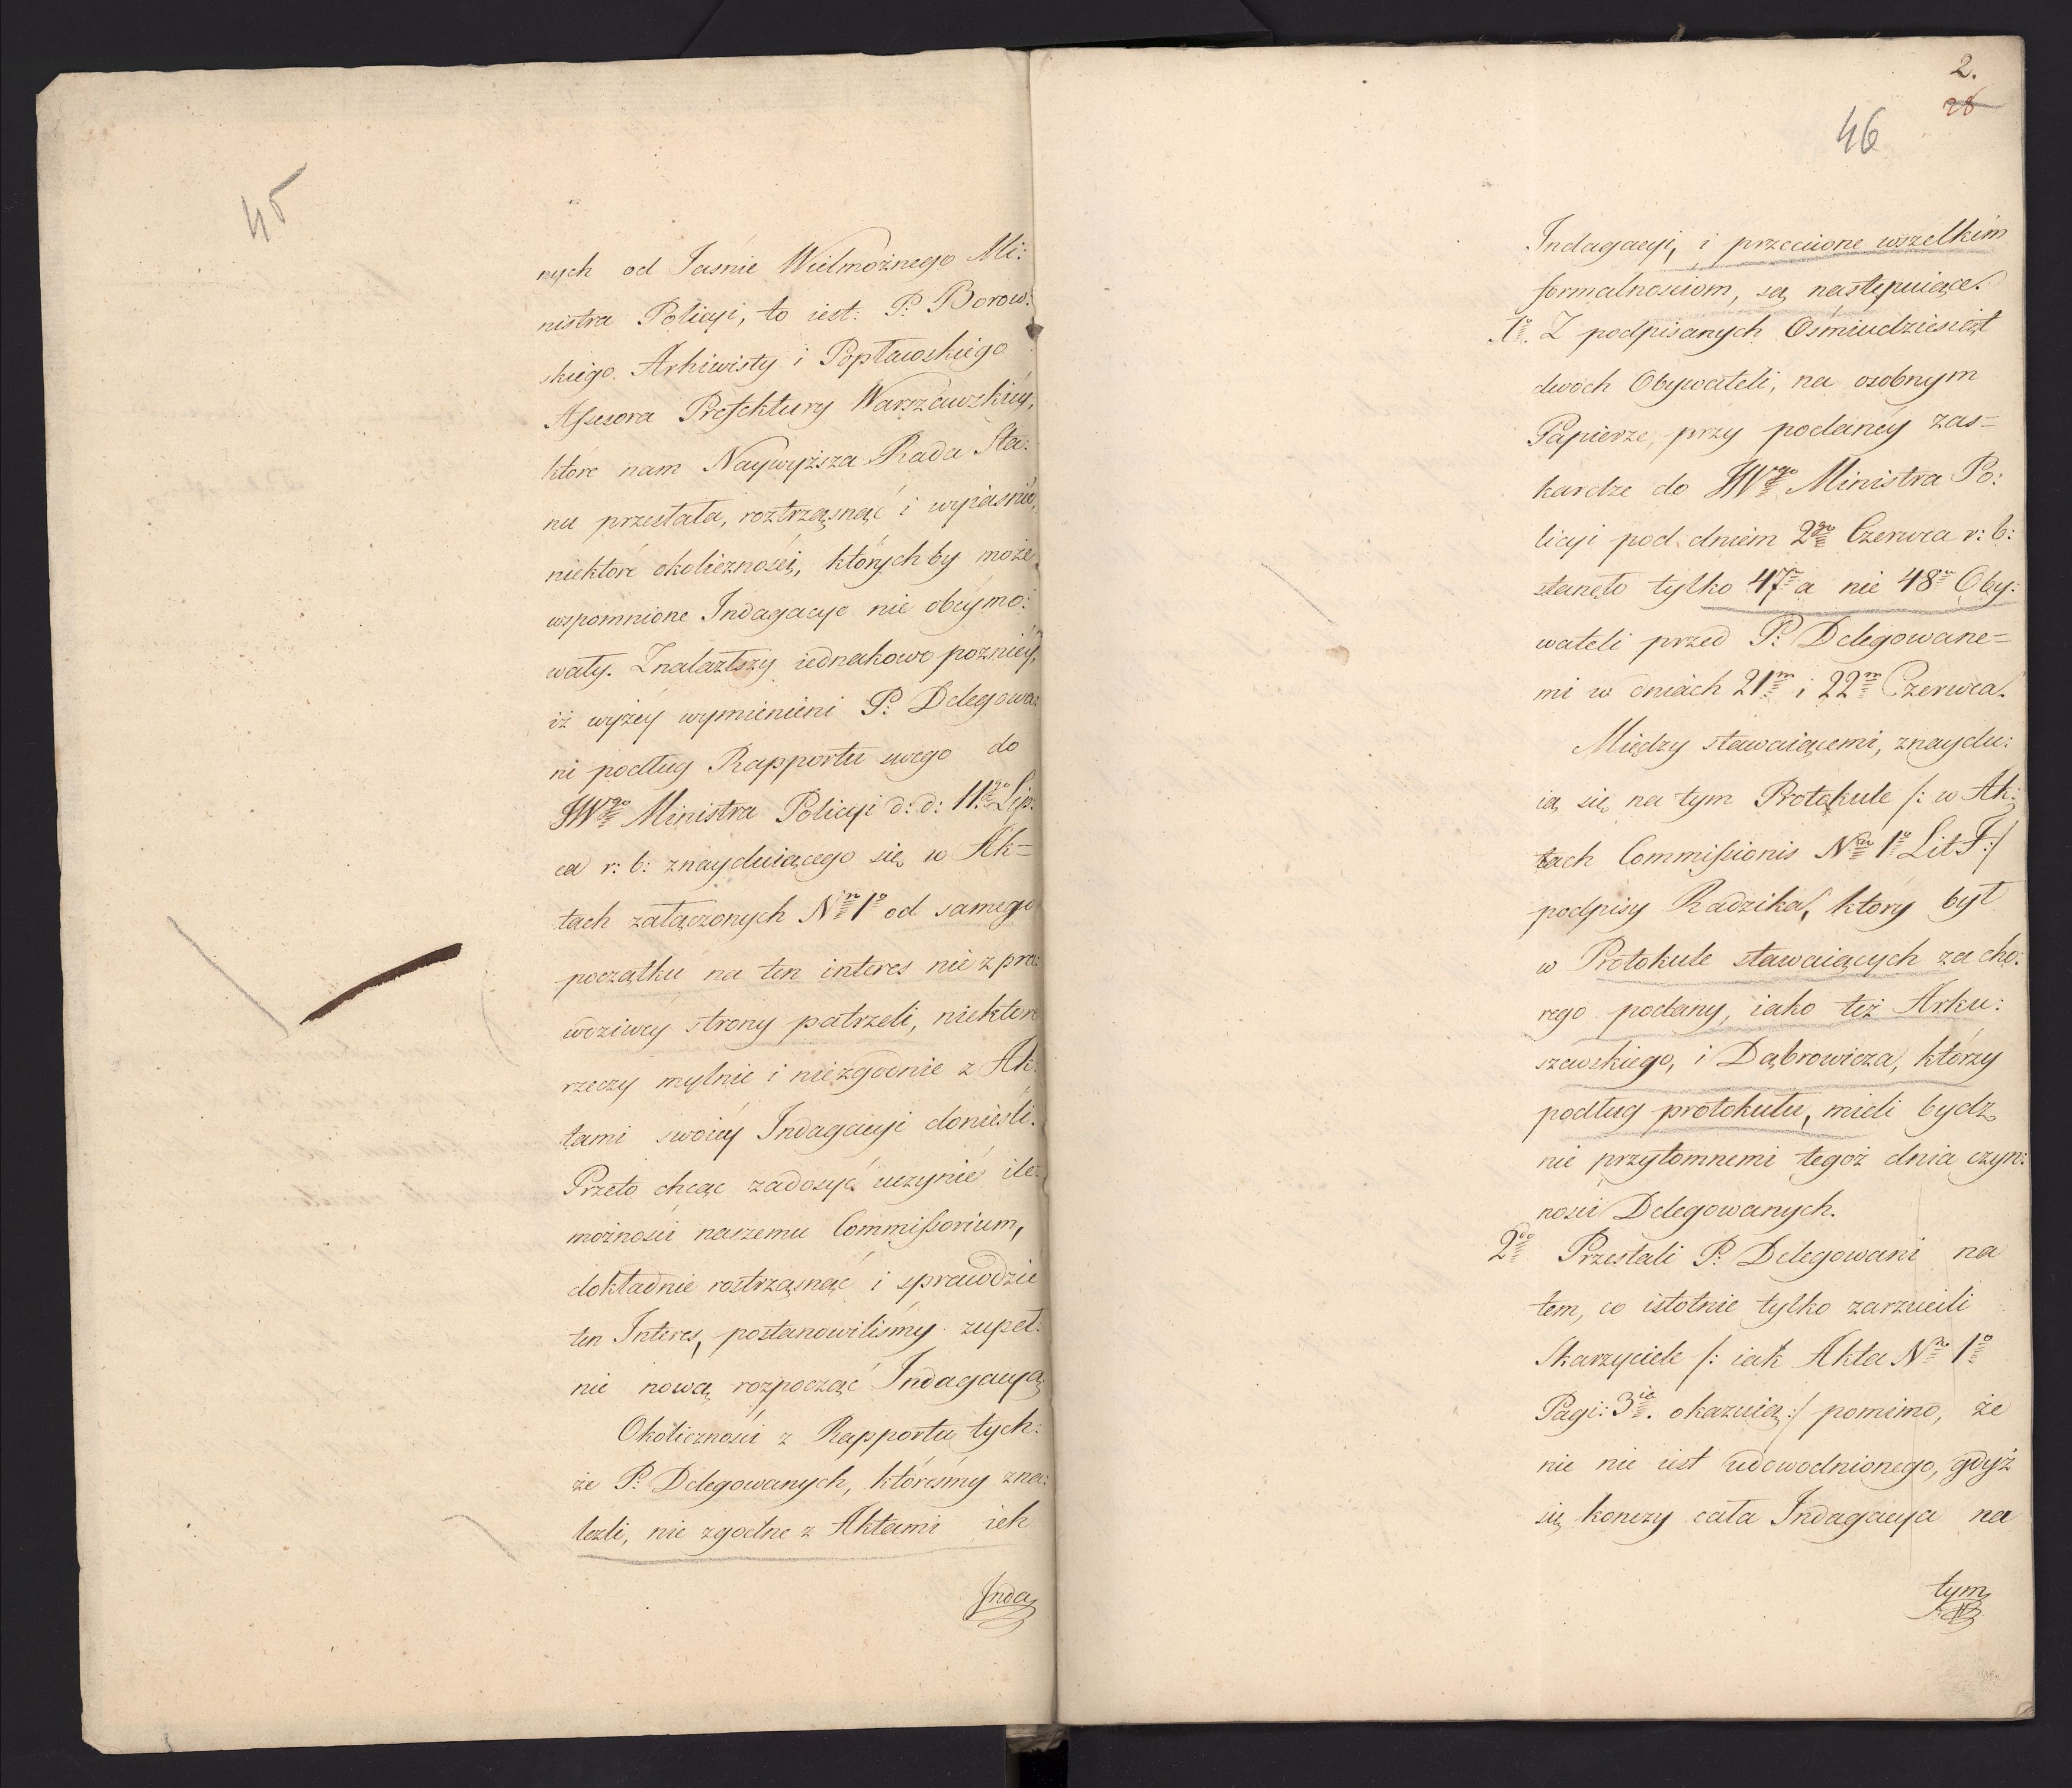 45
nych od Jaśnie Wielmożnego Mi:
nistra Policyi, to iest: P: Borow:
skiego Arhiwisty i Popławskiego
Assesora Prefektury Warszawskiey,
które nam Naywyższa Rada Sta:
nu przesłała, roztrząsnąć i wyiaśnić,
niektóre okoliczności, którychby może
wspomnione Indagacye nie obeymo:
wały. Znalazłszy iednakowo pozniey,
iż wyżey wymienieni P: Delegowa:
ni podług Rapportu swego do
JWgo Ministra Policyi d: d: 11go Lip:
ca r: b: znayduiącego się w Ak=
tach załączonych Nrn 1o od samego
początku na ten interes nie z pra:
wdziwey strony patrzeli, niektóre
rzeczy mylnie i niezgodnie z Ak:
tami swoiey Indagacyi donieśli.
Przeto chcąc zadosyć uczynić ile
możności naszemu Commissorium,
dokładnie rostrząsnąć i sprawdzić
ten Interes, postanowiliśmy zupeł:
nie nową rozpocząć Indagacyą
Okoliczności z Rapportu tych:
że P: Delegowanych, któreśmy zna:
lezli, nie zgodne z Aktami ich
Inda
2.
28
46
Indagacyi, i przeciwne wszelkim
formalnosciom, są następuiące.
1o. Z podpisanych Ośmiudziesiąt
dwóch Obywateli, na osobnym
Papierze, przy podaney zas=
kardze do JWgo Ministra Po:
licyi pod dniem 2go Czerwca r: b:
stanęło tylko 47u a nie 48u Oby:
wateli przed P: Delegowane=
mi w dniach 21m i 22m Czerwca.
Między stawaiącemi, znaydu:
ią się na tym Protokule /: w Ak:
tach Commissionis Nrn 1o Lit F:/
podpisy Radzika, który był
w Protokule stawaiących za cho:
rego podany, iako też Arku:
szewskiego, i Dąbrowicza, którzy
podług protokułu, mieli bydz
nie przytomnemi tegoż dnia czyn:
nosci Delegowanych.
2do Przestali P: Delegowani na
tem, co istotnie tylko zarzucili
Skarzyciele /: iak Akta Nrn 1o
Pagi: 3ie. okazuią :/ pomimo, że
nic nie iest udowodnionego, gdyż
się konczy cała Indagacya na
tym